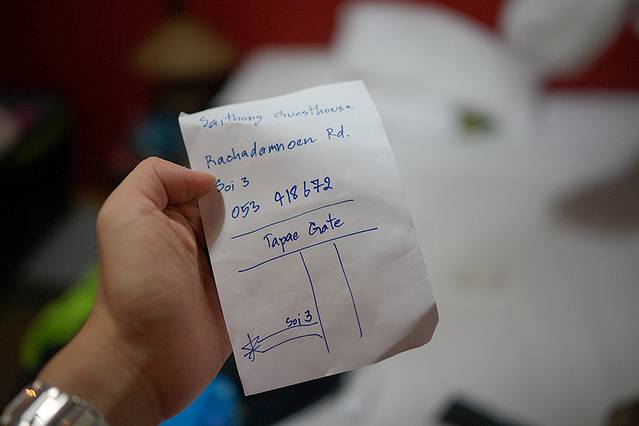 Saithong Guesthouse
Rachadamnoen Rd.
Soi 3
053 418672
Tapae Gate
Soi 3